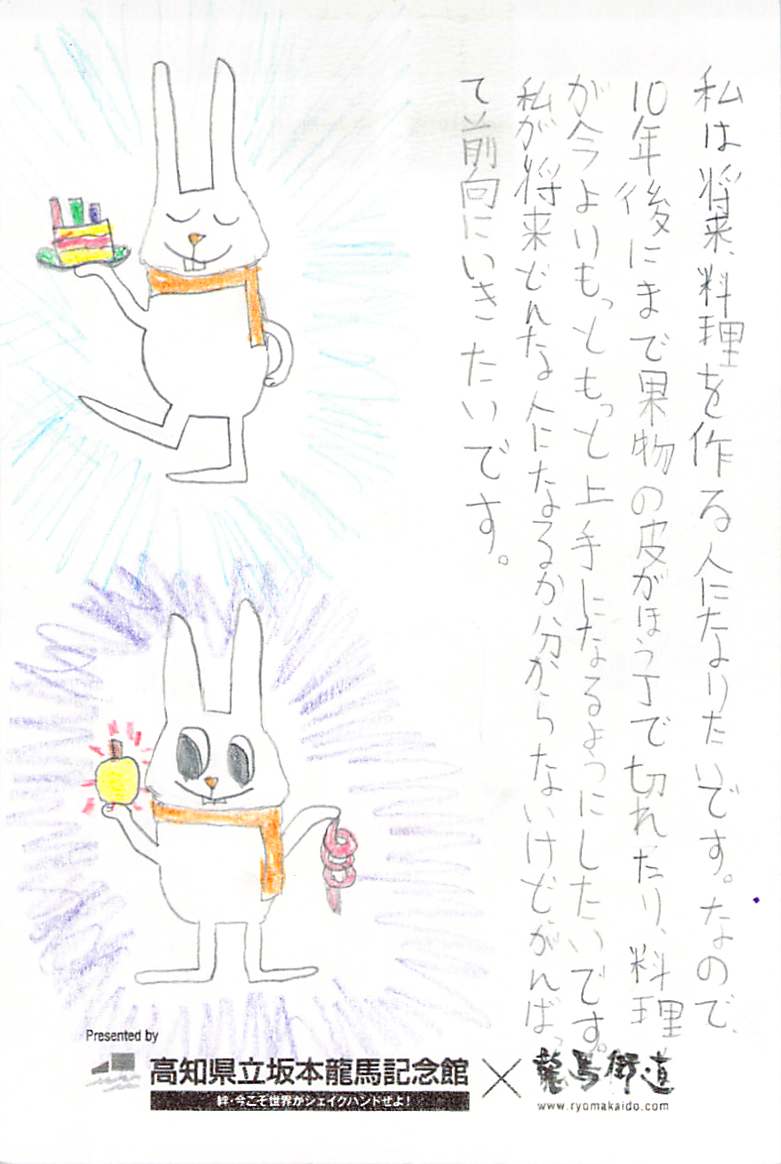 私は将来、料理を作る人になりたいです。なので、
10年後にまで果物の皮がほう丁で切れたり、料理
が今よりもっともっと上手になるようにしたいです。
私が将来どんな人になるか分からないけど、がんばっ
て前向にいきたいです。
Presented by
高知県立坂本龍馬記念館×龍馬街道
絆・今こそ世界がシェイクハンドせよ!
www.ryomakaido.com